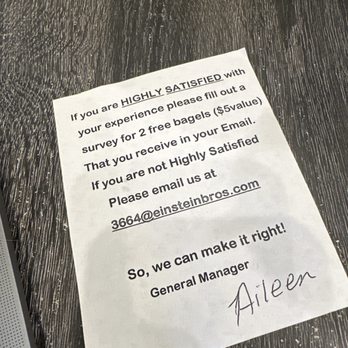 If you are HIGHLY SATISFIED with
your experience please fill out a
survey for 2 free bagels ($5value)
That you receive in your Email.
If you are not Highly Satisfied
Please email us at
3664@einsteinbros.com
So, we can make it right!
General Manager
Aileen